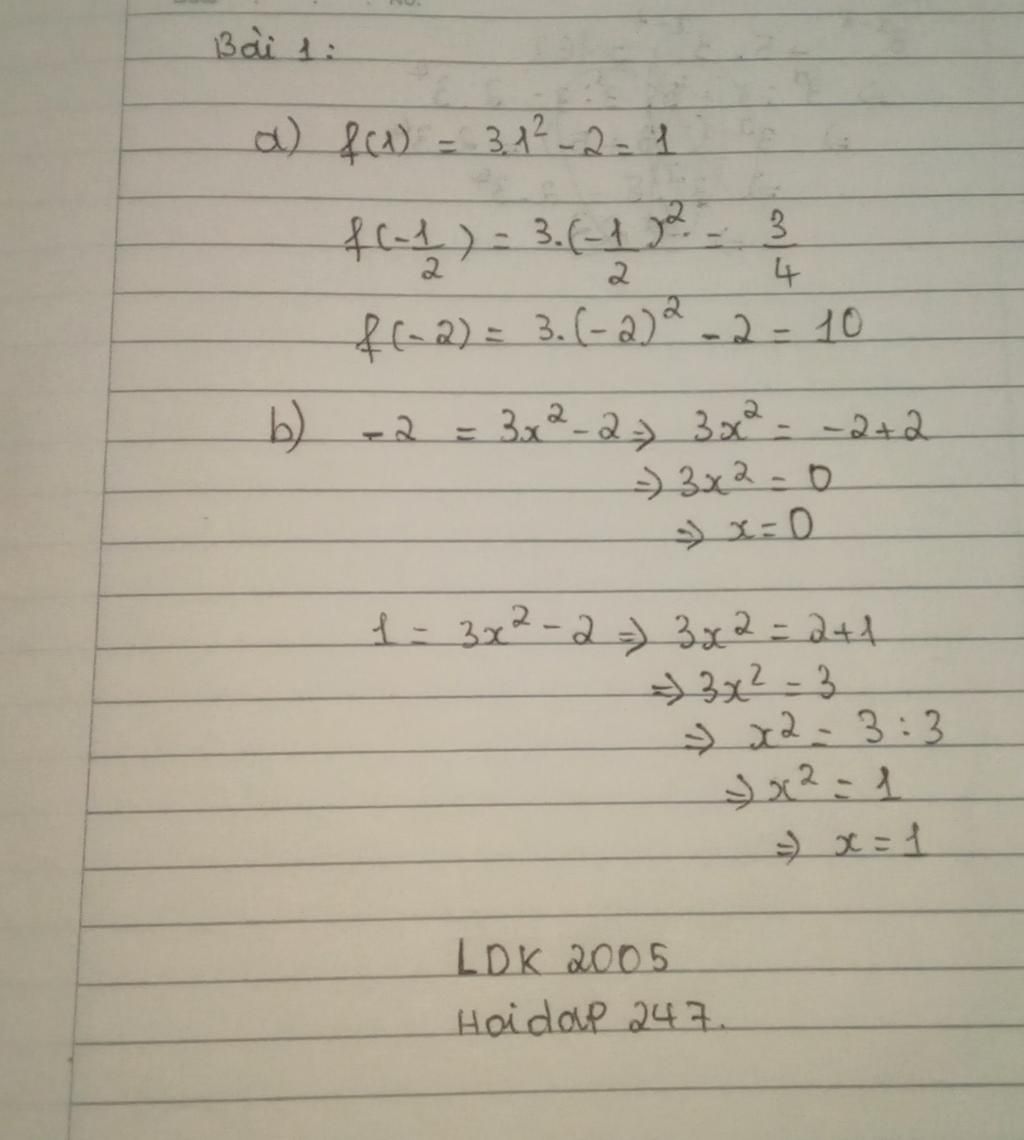 Bài 1:
a) f(1) = 3.1² - 2 = 1
f(-1/2) = 3.(-1/2)². = 3/4
f(-2) = 3.(-2)² - 2 = 10
b) -2 = 3x² - 2 => 3x² = -2+2
=> 3x² = 0
=> x = 0
1 = 3x² - 2 => 3x² = 2+1
=> 3x² = 3
=> x² = 3 : 3
=> x² = 1
=> x = 1
LDK 2005
Hoidap 247.